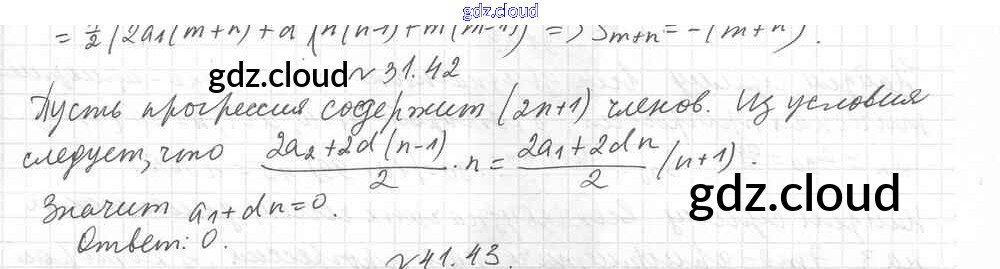 gdz.cloud
= 1/2 (2a₁(m+n) + d (n(n-1) + m(m-1)) => Sm+n = -(m+n).
gdz.cloud
№ 31.42
Пусть прогрессия содержит (2n+1) членов. Из условия
следует, что (2a₂+2d(n-1))/2 · n = (2a₁+2dn)/2 (n+1).
gdz.cloud
Значит a₁+dn=0.
Ответ: 0.
№ 41.43.